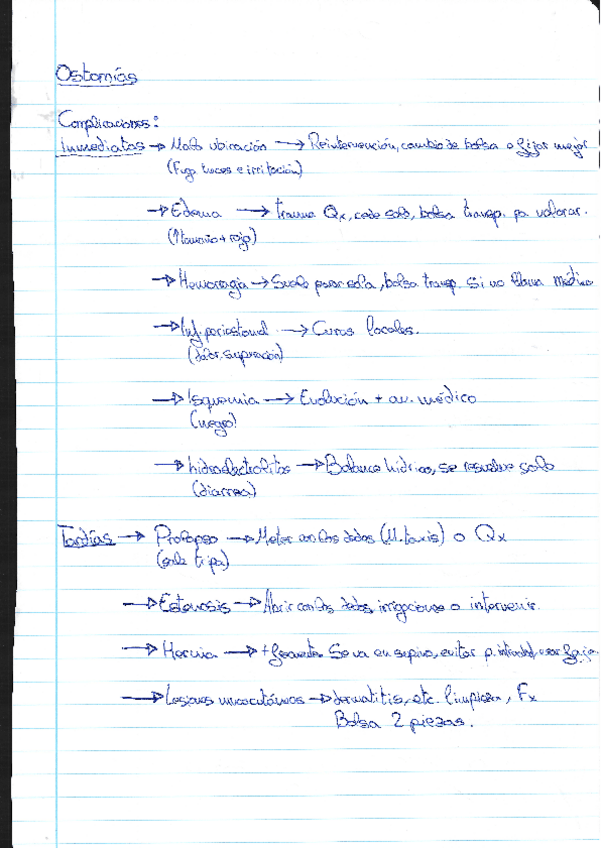 Ostomías
Complicaciones:
Inmediatas → Mala ubicación → Reintervención, cambio de bolsa o fijar mejor
(Fuga heces e irritación)
→ Edema → trauma Qx, cede solo, bolsa transp. pa valorar.
(↑tamaño + rojo)
→ Hemorragia → Suele parar sola, bolsa transp. Si no llamar médico
→ Inf. periostomal → Curas locales.
(dolor, supuración)
→ Isquemia → Evolución + av. médico
(negro)
→ hidroelectrolitos → Balance hídrico, se resuelve solo
(diarrea)
Tardías → Prolapso → Meter con los dedos (M. taxis) o Qx
(sale tripa)
→ Estenosis → Abrir con los dedos, irrigaciones o intervenir.
→ Hernia → + frecuente. Se va en supino, evitar p. intrabd, usar faja
→ Lesiones mucocutáneas → dermatitis, etc. limpieza, Fx
Bolsa 2 piezas.